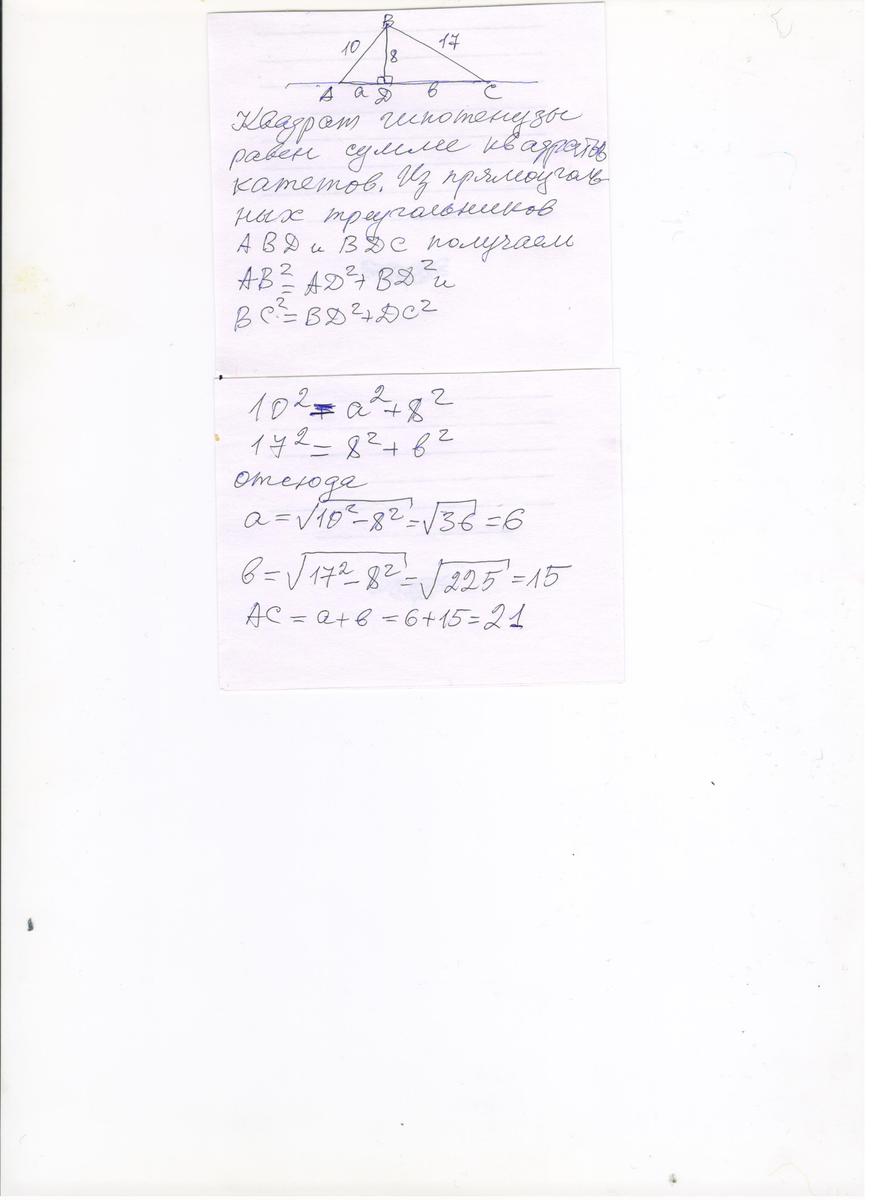 B
10 8 17
A a D в C
Квадрат гипотенузы
равен сумме квадратов
катетов. Из прямоуголь
ных треугольников
ABD и BDC получаем
AB² = AD² + BD² и
BC² = BD² + DC²
10² = a² + 8²
17² = 8² + в²
отсюда
a = √10² - 8² = √36 = 6
в = √17² - 8² = √225 = 15
AC = a + в = 6 + 15 = 21